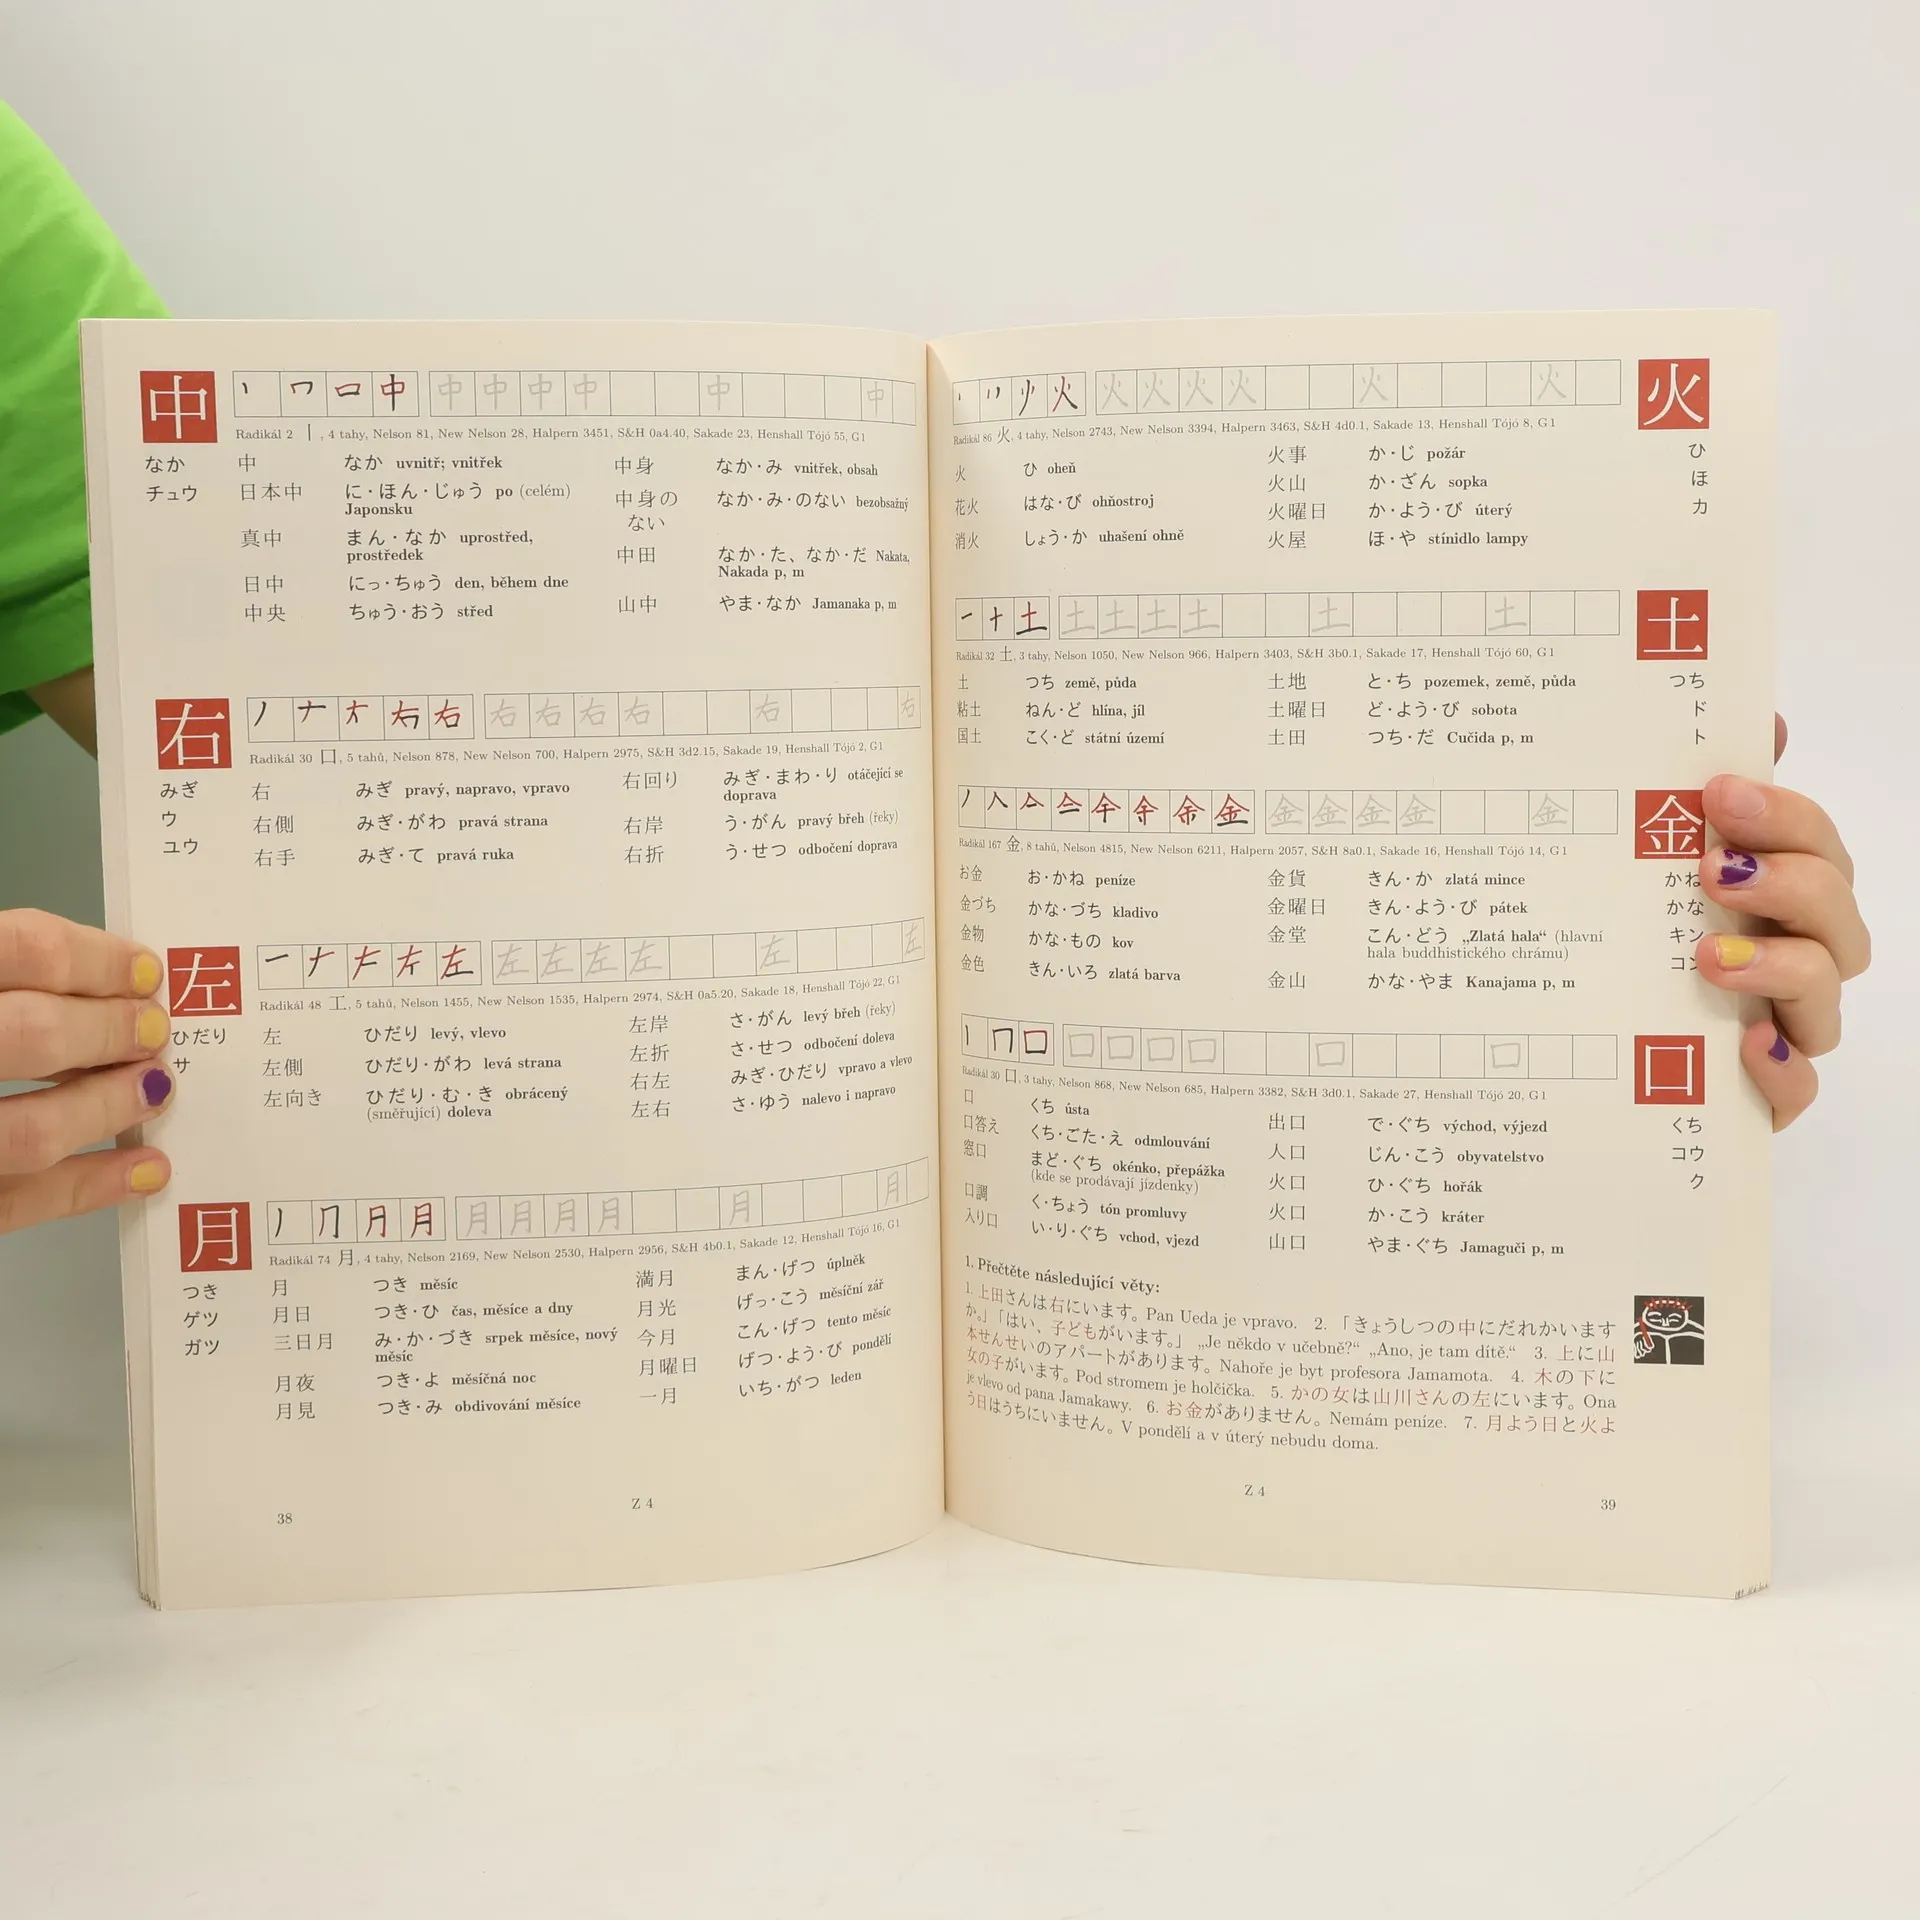 中
Radikál 2 丨, 4 tahy, Nelson 81, New Nelson 28, Halpern 3451, S&H 0a4.40, Sakade 23, Henshall Tójó 55, G1
なか
チュウ
中 なか uvnitř; vnitřek
日本中 に・ほん・じゅう po (celém)
Japonsku
真中 まん・なか uprostřed,
prostředek
日中 にっ・ちゅう den, během dne
中央 ちゅう・おう střed
中身 なか・み vnitřek, obsah
中身の なか・み・のない bezobsažný
ない
中田 なか・た、なか・だ Nakata,
Nakada p, m
山中 やま・なか Jamanaka p, m
右
Radikál 30 口, 5 tahů, Nelson 878, New Nelson 700, Halpern 2975, S&H 3d2.15, Sakade 19, Henshall Tójó 2, G1
みぎ
ウ
ユウ
右 みぎ pravý, napravo, vpravo
右側 みぎ・がわ pravá strana
右手 みぎ・て pravá ruka
右回り みぎ・まわ・り otáčející se
doprava
右岸 う・がん pravý břeh (řeky)
右折 う・せつ odbočení doprava
左
Radikál 48 工, 5 tahů, Nelson 1455, New Nelson 1535, Halpern 2974, S&H 0a5.20, Sakade 18, Henshall Tójó 22, G1
ひだり
サ
左 ひだり levý, vlevo
左側 ひだり・がわ levá strana
左向き ひだり・む・き obrácený
(směřující) doleva
左岸 さ・がん levý břeh (řeky)
左折 さ・せつ odbočení doleva
右左 みぎ・ひだり vpravo a vlevo
左右 さ・ゆう nalevo i napravo
月
Radikál 74 月, 4 tahy, Nelson 2169, New Nelson 2530, Halpern 2956, S&H 4b0.1, Sakade 12, Henshall Tójó 16, G1
つき
ゲツ
ガツ
月 つき měsíc
月日 つき・ひ čas, měsíce a dny
三日月 み・か・づき srpek měsíce, nový
měsíc
月夜 つき・よ měsíčná noc
月見 つき・み obdivování měsíce
満月 まん・げつ úplněk
月光 げっ・こう měsíční zář
今月 こん・げつ tento měsíc
月曜日 げつ・よう・び pondělí
一月 いち・がつ leden
38
Z 4
火
Radikál 86 火, 4 tahy, Nelson 2743, New Nelson 3394, Halpern 3463, S&H 4d0.1, Sakade 13, Henshall Tójó 8, G1
ひ
ほ
カ
火 ひ oheň
花火 はな・び ohňostroj
消火 しょう・か uhašení ohně
火事 か・じ požár
火山 か・ざん sopka
火曜日 か・よう・び úterý
火屋 ほ・や stínidlo lampy
土
Radikál 32 土, 3 tahy, Nelson 1050, New Nelson 966, Halpern 3403, S&H 3b0.1, Sakade 17, Henshall Tójó 60, G1
つち
ド
ト
土 つち země, půda
粘土 ねん・ど hlína, jíl
国土 こく・ど státní území
土地 と・ち pozemek, země, půda
土曜日 ど・よう・び sobota
土田 つち・だ Cučida p, m
金
Radikál 167 金, 8 tahů, Nelson 4815, New Nelson 6211, Halpern 2057, S&H 8a0.1, Sakade 16, Henshall Tójó 14, G1
かね
かな
キン
コン
お金 お・かね peníze
金づち かな・づち kladivo
金物 かな・もの kov
金色 きん・いろ zlatá barva
金貨 きん・か zlatá mince
金曜日 きん・よう・び pátek
金堂 こん・どう „Zlatá hala“ (hlavní
hala buddhistického chrámu)
金山 かな・やま Kanajama p, m
口
Radikál 30 口, 3 tahy, Nelson 868, New Nelson 685, Halpern 3382, S&H 3d0.1, Sakade 27, Henshall Tójó 20, G1
くち
コウ
ク
口 くち ústa
口答え くち・ごた・え odmlouvání
窓口 まど・ぐち okénko, přepážka
(kde se prodávají jízdenky)
口調 く・ちょう tón promluvy
入り口 い・り・ぐち vchod, vjezd
出口 で・ぐち východ, výjezd
人口 じん・こう obyvatelstvo
火口 ひ・ぐち hořák
火口 か・こう kráter
山口 やま・ぐち Jamaguči p, m
1. Přečtěte následující věty:
1. 上田さんは右にいます。Pan Ueda je vpravo. 2. 「きょうしつの中にだれかいます
か。」「はい、子どもがいます。」 „Je někdo v učebně?“ „Ano, je tam dítě.“ 3. 上に山
本せんせいのアパートがあります。Nahoře je byt profesora Jamamota. 4. 木の下に
女の子がいます。Pod stromem je holčička. 5. かの女は山川さんの左にいます。Ona
je vlevo od pana Jamakawy. 6. お金がありません。Nemám peníze. 7. 月よう日と火よ
う日はうちにいません。V pondělí a v úterý nebudu doma.
Z 4
39